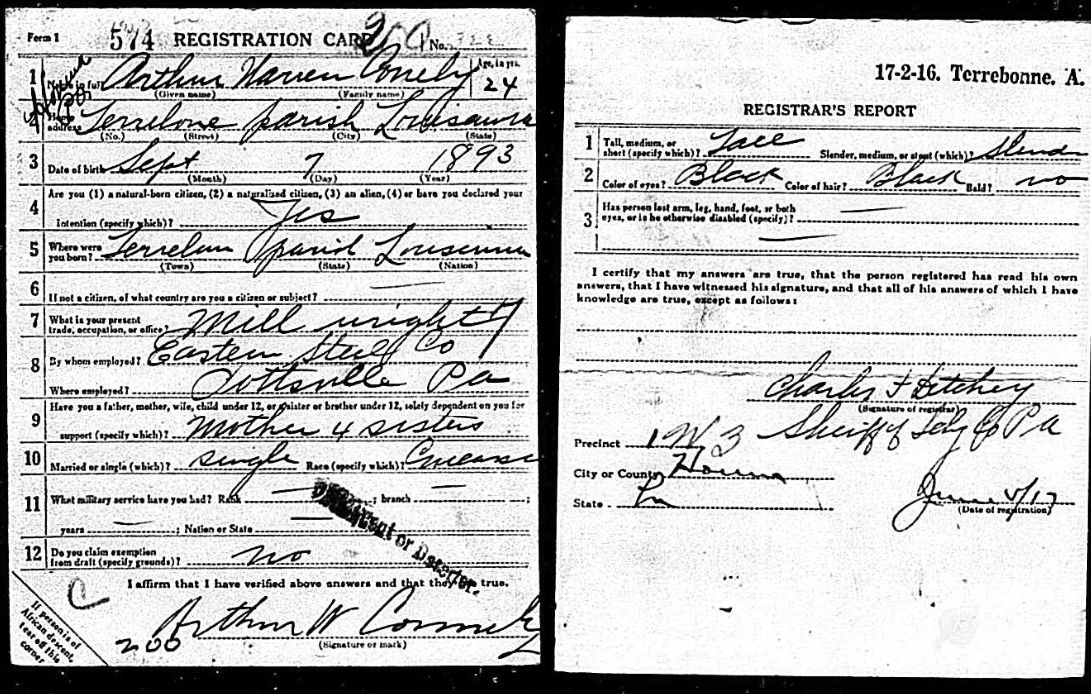 Form 1 574 REGISTRATION CARD No.
1 Name in full Arthur Warren Age, in yrs. 24
(Given name) (Family name)
2 Home address parish
(No.) (Street) (City) (State)
3 Date of birth Sept 7 1893
(Month) (Day) (Year)
4 Are you (1) a natural-born citizen, (2) a naturalized citizen, (3) an alien, (4) or have you declared your
intention (specify which)? Yes
5 Where were you born?
(Town) (State) (Nation)
6 If not a citizen, of what country are you a citizen or subject?
7 What is your present trade, occupation, or office? Mill wright
8 By whom employed? Eastern Steel Co
Where employed? Pottsville Pa
9 Have you a father, mother, wife, child under 12, or a sister or brother under 12, solely dependent on you for
support (specify which)? Mother 4 sisters
10 Married or single (which)? single Race (specify which)?
11 What military service have you had? Rank ; branch ;
years ; Nation or State
12 Do you claim exemption from draft (specify grounds)? no
or Deserter.
I affirm that I have verified above answers and that they are true.
C
Arthur W
200 (Signature or mark)
If person is of
African descent,
tear off this
corner
17-2-16. Terrebonne. A.
REGISTRAR'S REPORT
1 Tall, medium, or short (specify which)? Tall Slender, medium, or stout (which)?
2 Color of eyes? Black Color of hair? Black Bald? no
3 Has person lost arm, leg, hand, foot, or both
eyes, or is he otherwise disabled (specify)?
I certify that my answers are true, that the person registered has read his own
answers, that I have witnessed his signature, and that all of his answers of which I have
knowledge are true, except as follows:
Charles F
(Signature of registrar)
Precinct 1 W 3 Sheriff Co Pa
City or County Houma
State
June 5/17
(Date of registration)